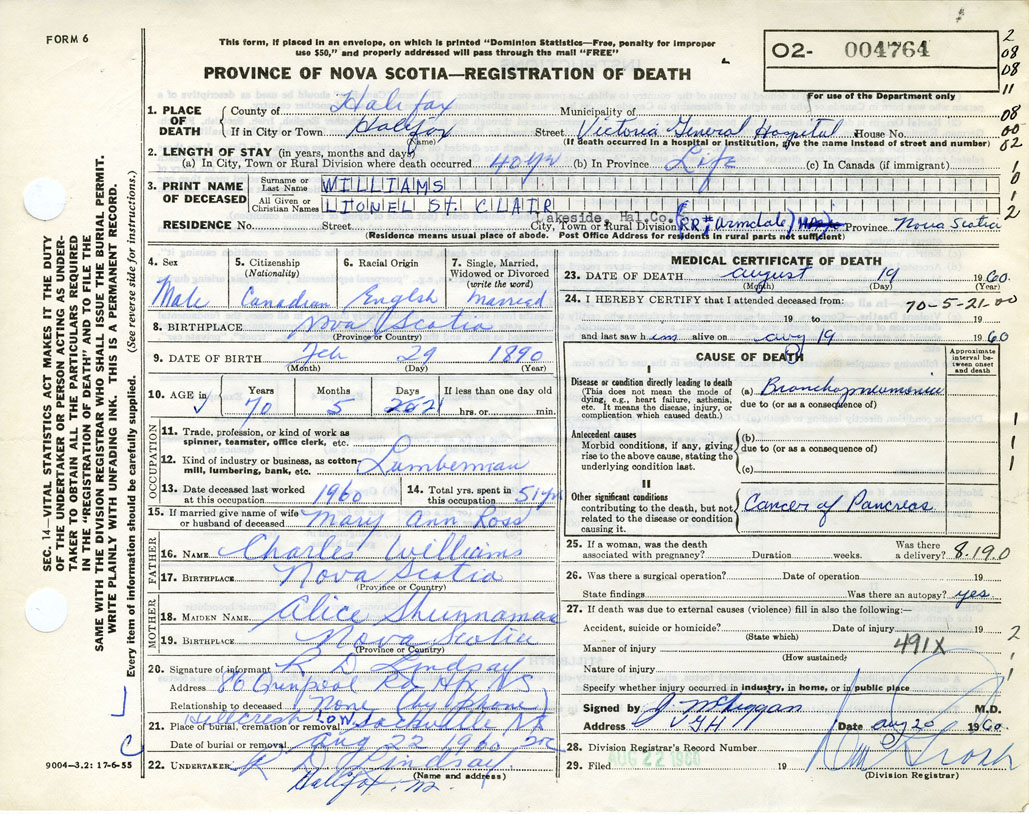 FORM 6
This form, if placed in an envelope, on which is printed "Dominion Statistics—Free, penalty for improper
use $50," and properly addressed will pass through the mail "FREE"
PROVINCE OF NOVA SCOTIA—REGISTRATION OF DEATH
O2- 004764
For use of the Department only
2
08
08
11
08
00
02
1
0
1
2
1. PLACE OF DEATH
County of Halifax
Municipality of
If in City or Town Halifax
(Name)
Street Victoria General Hospital House No.
(If death occurred in a hospital or institution, give the name instead of street and number)
2. LENGTH OF STAY (in years, months and days)
(a) In City, Town or Rural Division where death occurred 40 yr (b) In Province Life (c) In Canada (if immigrant)
3. PRINT NAME OF DECEASED
Surname or Last Name WILLIAMS
All Given or Christian Names LIONEL ST. CLAIR
RESIDENCE No. Street Lakeside, Hal.Co. City, Town or Rural Division (RR#1 Armdale) Province Nova Scotia
(Residence means usual place of abode. Post Office Address for residents in rural parts not sufficient)
4. Sex
Male
5. Citizenship
(Nationality)
Canadian
6. Racial Origin
English
7. Single, Married, Widowed or Divorced
(write the word)
Married
8. BIRTHPLACE Nova Scotia
(Province or Country)
9. DATE OF BIRTH Feb 29 1890
(Month) (Day) (Year)
10. AGE in
Years Months Days If less than one day old
70 5 21 hrs. or min.
OCCUPATION
11. Trade, profession, or kind of work as
spinner, teamster, office clerk, etc.
12. Kind of industry or business, as cotton-
mill, lumbering, bank, etc. Lumberman
13. Date deceased last worked
at this occupation 1960
14. Total yrs. spent in
this occupation 51 yr
15. If married give name of wife
or husband of deceased Mary Ann Ross
FATHER
16. NAME Charles Williams
17. BIRTHPLACE Nova Scotia
(Province or Country)
MOTHER
18. MAIDEN NAME Alice Shunnaman
19. BIRTHPLACE Nova Scotia
(Province or Country)
20. Signature of informant R D Lindsay
Address 86 Quinpool Rd Hfx NS
Relationship to deceased None (by phone)
21. Place of burial, cremation or removal Hillcrest Low. Sackville, NS
Date of burial or removal Aug 22 1960
22. UNDERTAKER R D Lindsay
(Name and address)
Halifax, NS.
MEDICAL CERTIFICATE OF DEATH
23. DATE OF DEATH August 19 1960
(Month) (Day) (Year)
24. I HEREBY CERTIFY that I attended deceased from:
70-5-21-00
19 to 19
and last saw him alive on Aug 19 1960
CAUSE OF DEATH
Approximate interval between onset and death
I
Disease or condition directly leading to death
(This does not mean the mode of
dying, e.g., heart failure, asthenia,
etc. It means the disease, injury, or
complication which caused death.)
(a) Bronchopneumonia
due to (or as a consequence of)
Antecedent causes
Morbid conditions, if any, giving
rise to the above cause, stating the
underlying condition last.
(b)
due to (or as a consequence of)
(c)
II
Other significant conditions
contributing to the death, but not
related to the disease or condition
causing it.
Cancer of Pancreas
1
1
1
1
25. If a woman, was the death
associated with pregnancy? Duration weeks. Was there
a delivery? 8.190
26. Was there a surgical operation? Date of operation 19
State findings Was there an autopsy? yes
27. If death was due to external causes (violence) fill in also the following:—
Accident, suicide or homicide? Date of injury 19
(State which)
Manner of injury 491X
(How sustained)
Nature of injury
2
1
1
Specify whether injury occurred in industry, in home, or in public place
Signed by J McKiggan M.D.
Address VGH Date Aug 20 1960
28. Division Registrar's Record Number
29. Filed AUG 22 1960 19
(Division Registrar)
SEC. 14—VITAL STATISTICS ACT MAKES IT THE DUTY
OF THE UNDERTAKER OR PERSON ACTING AS UNDER-
TAKER TO OBTAIN ALL THE PARTICULARS REQUIRED
IN THE "REGISTRATION OF DEATH" AND TO FILE THE
SAME WITH THE DIVISION REGISTRAR WHO SHALL ISSUE THE BURIAL PERMIT.
WRITE PLAINLY WITH UNFADING INK. THIS IS A PERMANENT RECORD.
Every item of information should be carefully supplied. (See reverse side for instructions.)
9004—3.2: 17-6-55